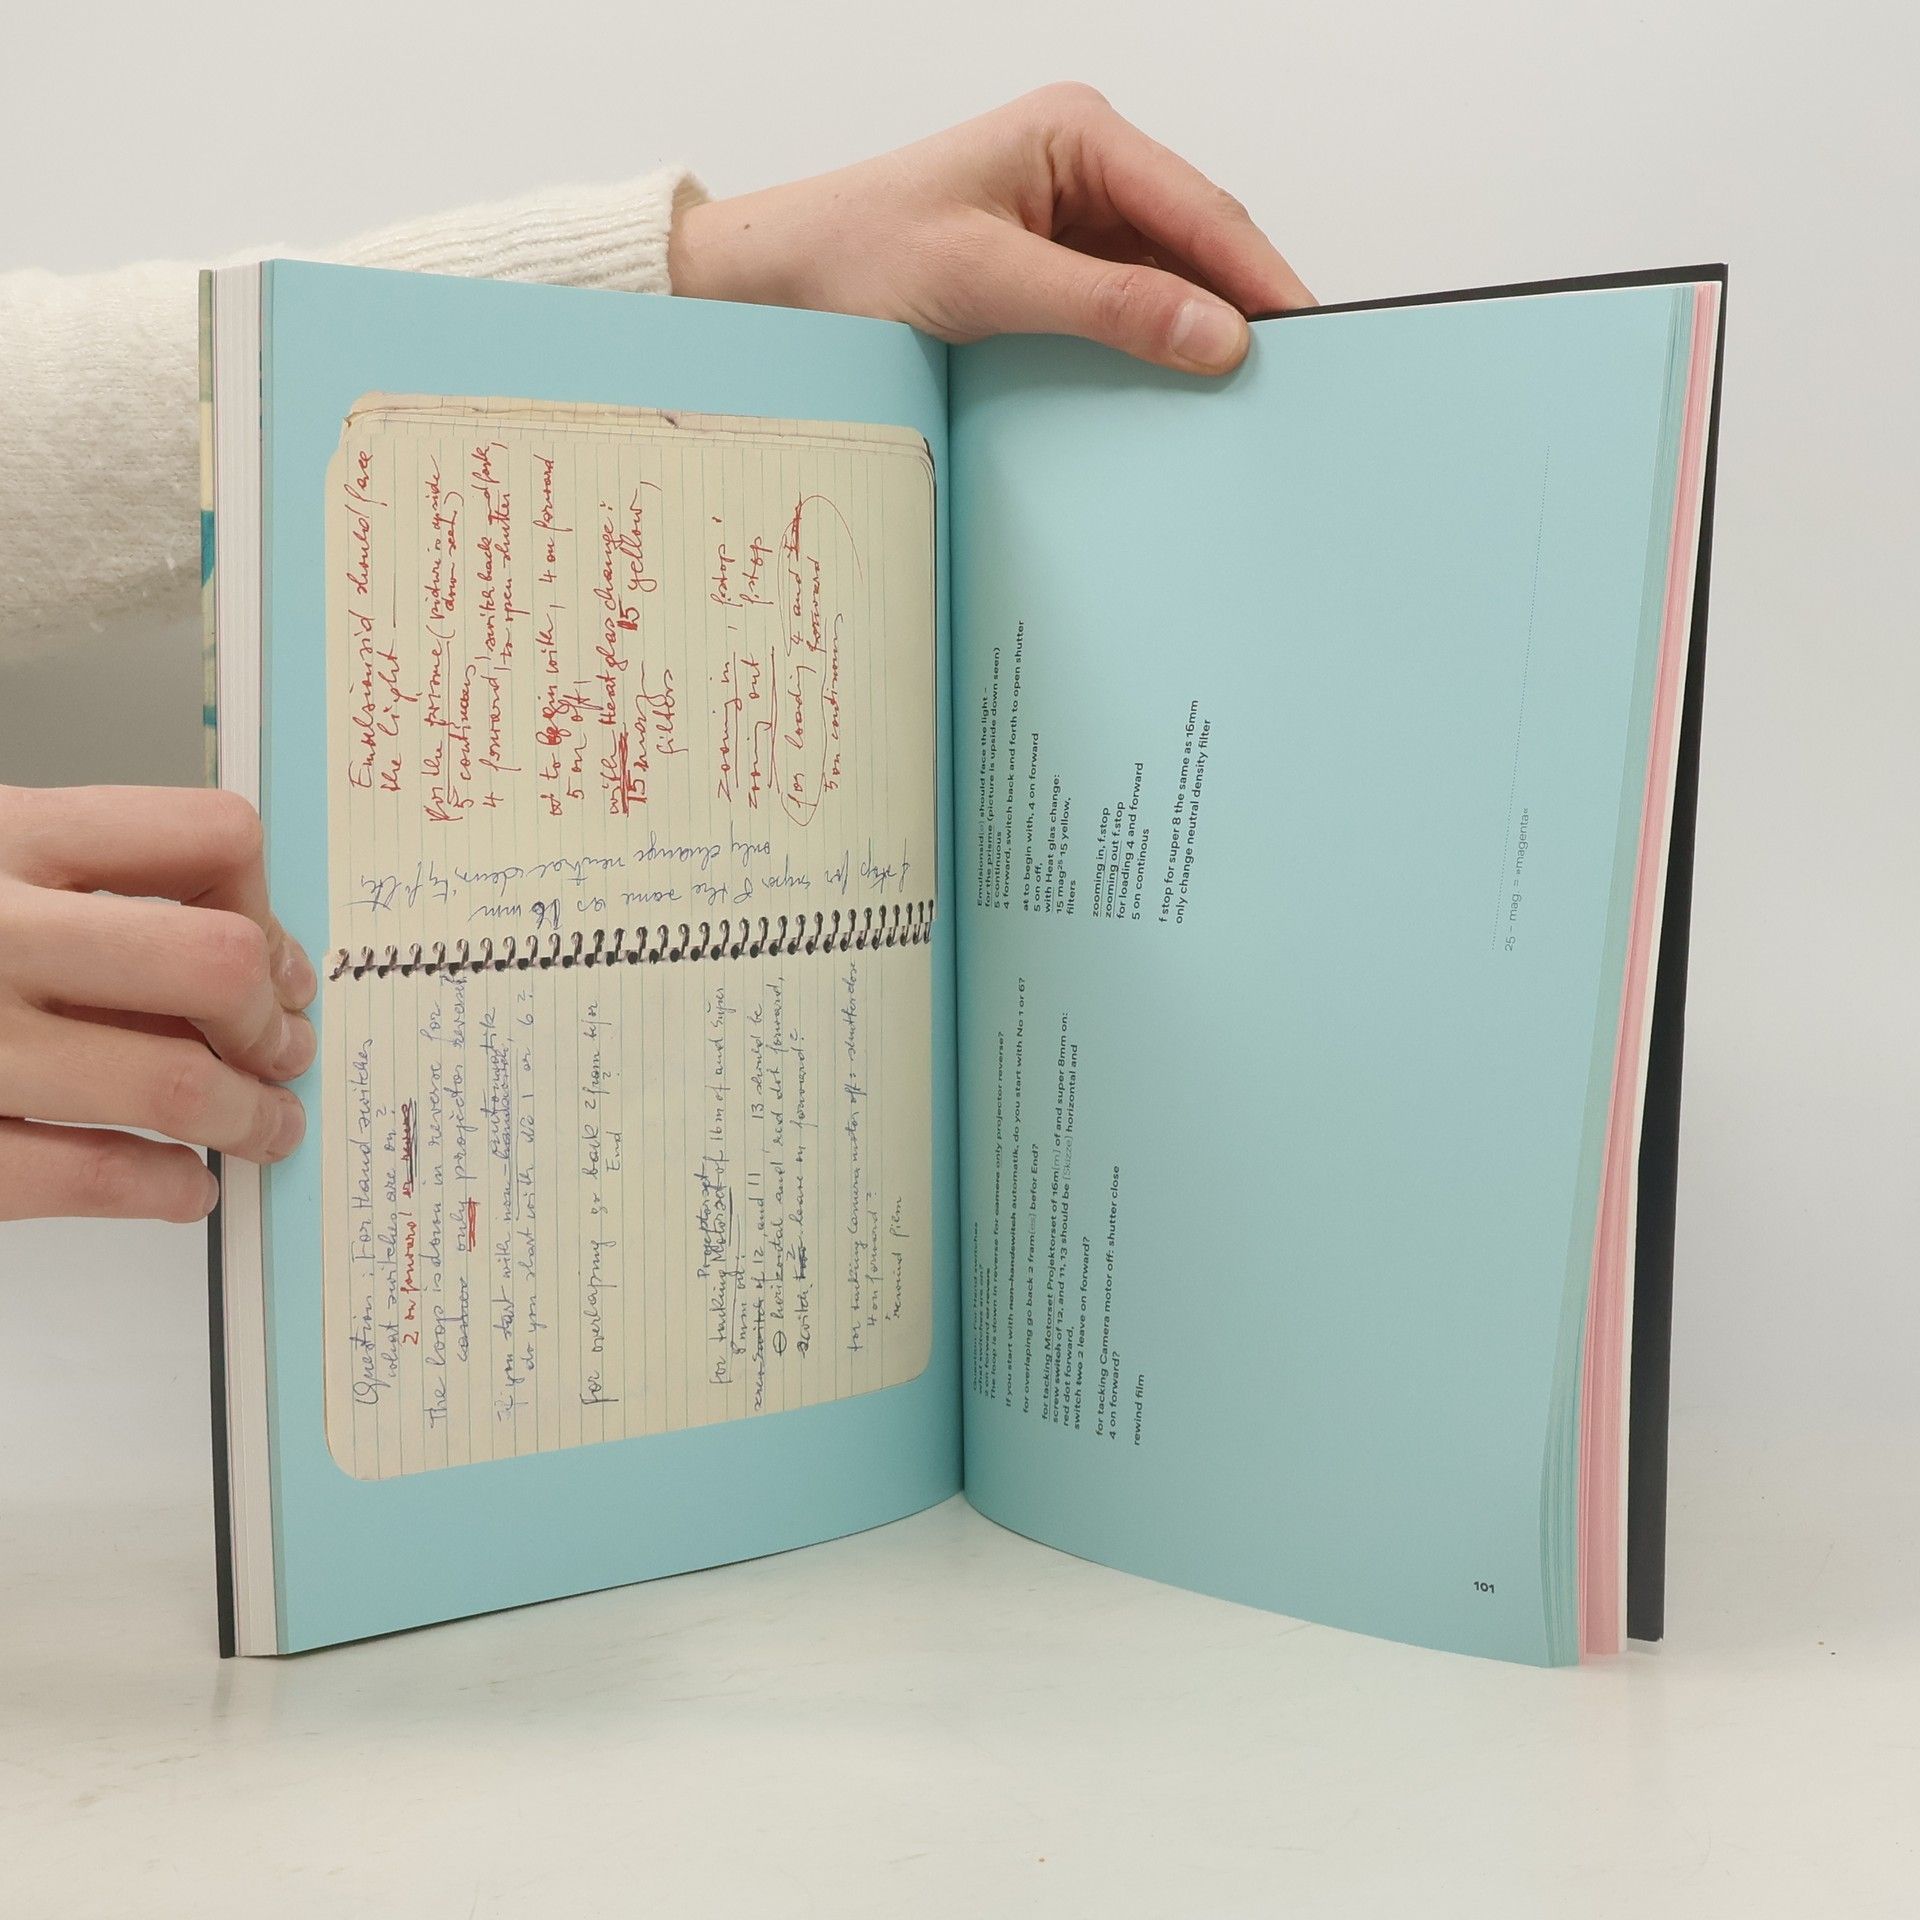 Question: For Hand switches
what switches are on?
2 on forward or reverse
The loop is down in reverse for
camera only projector reverse?
if you start with non-handswitch
automatik
do you start with No 1 or 6?
for overlaping go back 2 fram befor
End?
for tacking Motorset of 16m of and super
Projektorset
8mm on:
screw switch of 12, and 11, 13 should be
⊖ horizontal and red dot forward,
switch two 2 leave on forward?
for tacking Camera motor off: shutter close
4 on forward?
rewind film
Emulsionsid should face
the light –
for the prisme (picture is upside
down seen)
5 continuous
4 forward, switch back and forth
to open shutter
at to begin with, 4 on forward
5 on off,
with Heat glas change:
15 mag 15 yellow,
filters
zooming in, f.stop
zooming out f.stop
for loading 4 and
forward
5 on continous
f stop for super 8 the same as 16mm
only change neutral density filter
Question: For Hand switches
what switches are on?
2 on forward or revers
The loop is down in reverse for camera only projector reverse?
If you start with non-handswitch automatik, do you start with No 1 or 6?
for overlaping go back 2 fram[es] befor End?
for tacking Motorset Projektorset of 16m[m] of and super 8mm on:
screw switch of 12, and 11, 13 should be [Skizze] horizontal and
red dot forward,
switch two 2 leave on forward?
for tacking Camera motor off: shutter close
4 on forward?
rewind film
Emulsionsid[e] should face the light –
for the prisme (picture is upside down seen)
5 continuous
4 forward, switch back and forth to open shutter
at to begin with, 4 on forward
5 on off,
with Heat glas change:
15 mag²⁵ 15 yellow,
filters
zooming in, f.stop
zooming out f.stop
for loading 4 and forward
5 on continous
f stop for super 8 the same as 16mm
only change neutral density filter
25 – mag = »magenta«
101